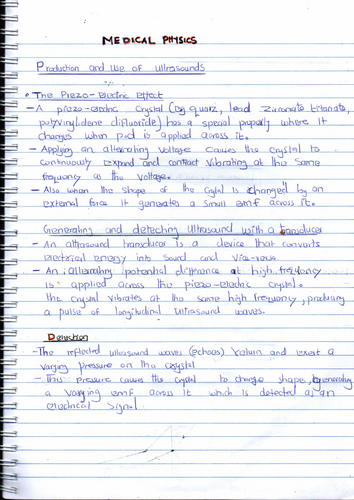 MEDICAL PHYSICS
Production and use of ultrasounds
• The Piezo-Electric Effect
- A piezo-electric crystal (eg quarz, lead zirconate titanate,
polyvinylidene difluoride) has a special property where it
changes when p.d is applied across it.
- Applying an alternating voltage causes the crystal to
continuously expand and contract vibrating at the same
frequency as the voltage.
- Also when the shape of the crystal is changed by an
external force it generates a small emf across it.
Generating and detecting ultrasound with a transducer
- An ultrasound transducer is a device that converts
electrical energy into sound and vice-versa.
- An alternating potential difference at high frequency
is applied across the piezo-electric crystal.
The crystal vibrates at the same high frequency, producing
a pulse of longitudinal ultrasound waves.
Detection
- The reflected ultrasound waves (echoes) return and exert a
varying pressure on the crystal
- This pressure causes the crystal to change shape, generating
a varying emf across it which is detected as an
electrical signal.